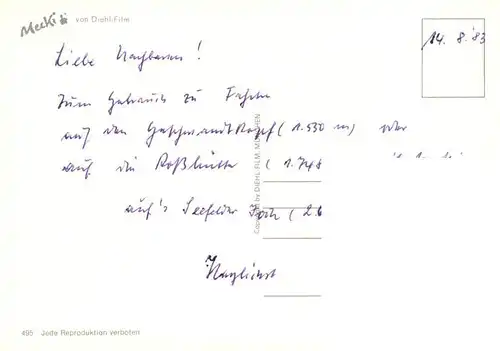 Mecki von Diehl-Film
14. 8. '83
Liebe Nachbarn!
Zum Gebrauch zu
auf den Gschwandtkopf (1.530 m) oder
auf die Roßhütte (1.748
auf's Seefelder Joch (2.
Herzlichst
Copyright by DIEHL FILM, MÜNCHEN
495 Jede Reproduktion verboten